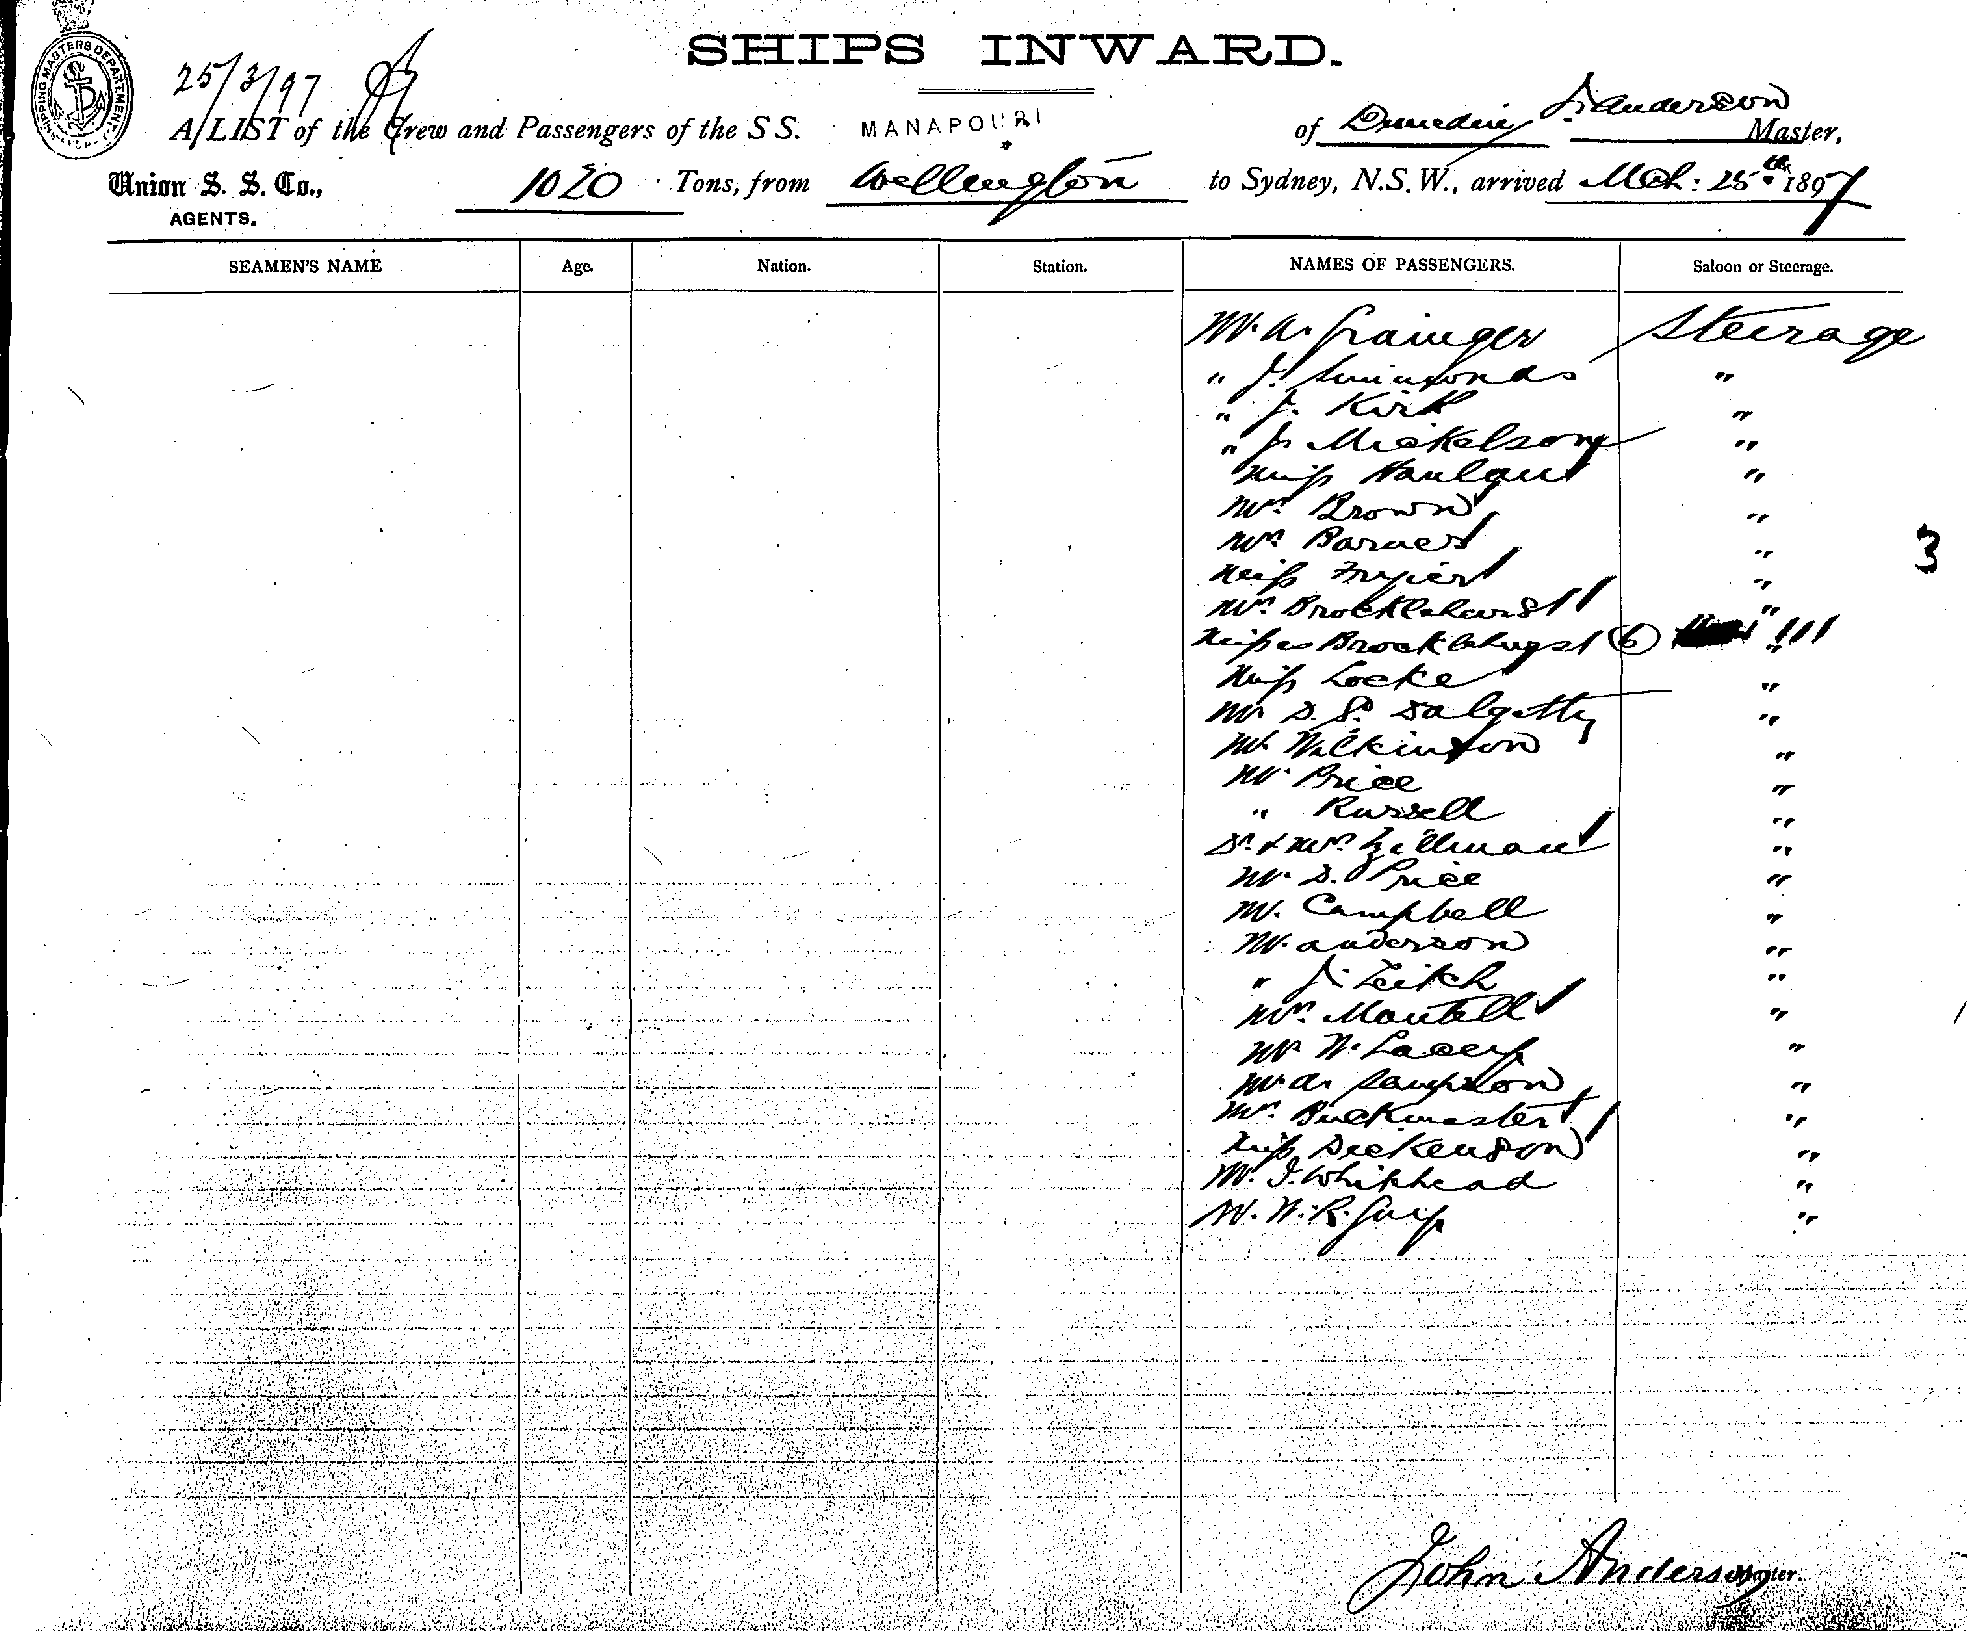 SHIPS INWARD.
SHIPPING MASTERS DEPARTMENT
25/3/97
A LIST of the Crew and Passengers of the S S. MANAPOURI of Dunedin J. Anderson Master,
Union S. S. Co., 1020 Tons, from Wellington to Sydney, N.S.W., arrived Mch: 25th 1897
AGENTS.
SEAMEN'S NAME Age. Nation. Station. NAMES OF PASSENGERS. Saloon or Steerage.
Mr. A. Grainger Steerage
" J. Simmonds "
" J. Kirk "
" J. Mickelson "
Miss Hanlan "
Mr. Brown "
Mrs. Barnes "
Miss "
Mrs. Brocklehurst "
Misses Brocklehurst 6 "
Miss Locke "
Mr D. S. Dalgetty "
Mr. Wilkinson "
Mr. Price "
" Russell "
Dr. & Mrs. Zillman "
Mr. D. Price "
Mr. Campbell "
Mr. Anderson "
" J. Leitch "
Mrs. Mantell "
Mr W. Lacey "
Mr A. Sampson "
Mrs. Buckmaster "
Miss Dickenson "
Mr. J. Whitehead "
Mr. W. R. "
3
John Anderson Master.